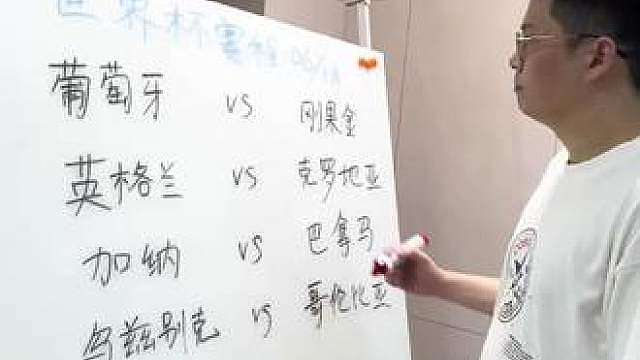 世界杯赛程 06/18
葡萄牙 vs 刚果金
英格兰 vs 克罗地亚
加纳 vs 巴拿马
乌兹别克 vs 哥伦比亚